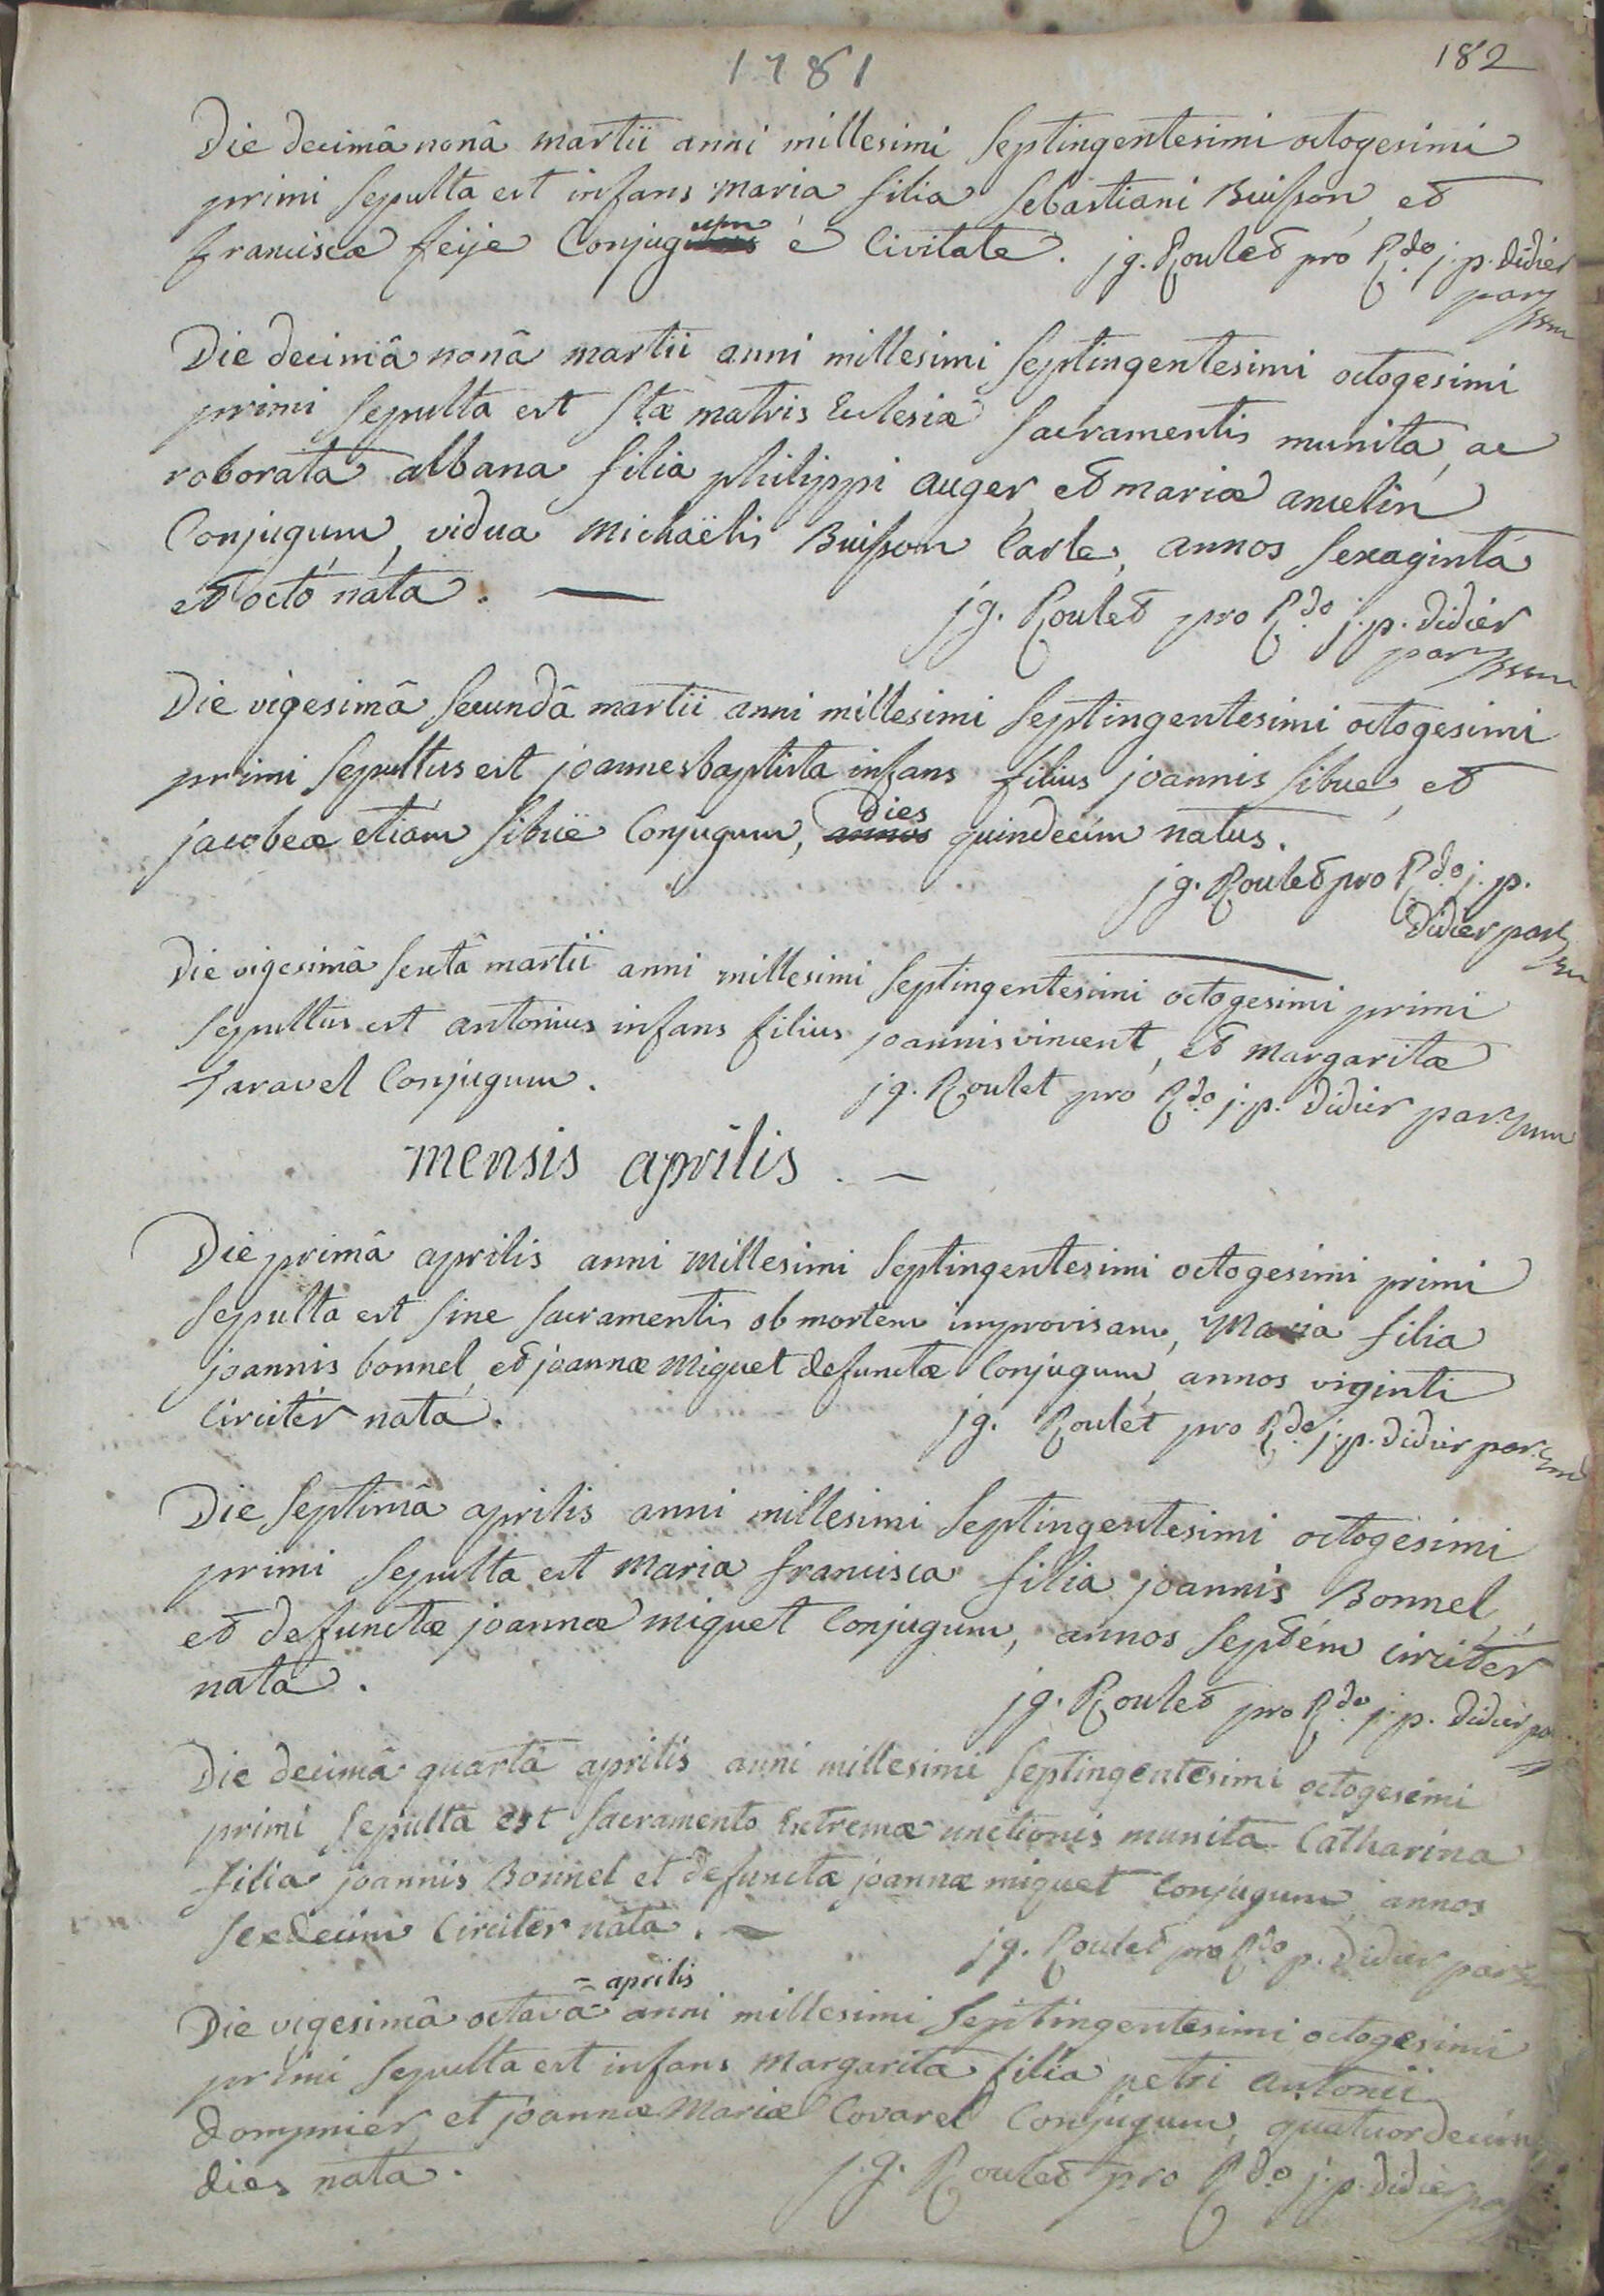 1781
182
Die decimâ nonâ martii anni millesimi septingentesimi octogesimi
primi sepulta est infans maria filia sebastiani Buisson, et
franciscæ feije Conjugum è Civitate. jg. Roulet pro Rdo j. p. didier
par
Die decimâ nonâ martii anni millesimi septingentesimi octogesimi
primi sepulta est stæ matris Eclesiæ sacramentis munita, ac
roborata albana filia philippi auger, et mariæ ancelin
Conjugum, vidua Michaëlis Buisson Carle, annos sexaginta
et octo nata. —
jg. Roulet pro Rdo j. p. didier
par
Die vigesimâ secundâ martii anni millesimi septingentesimi octogesimi
primi sepultus est joannesbaptista infans filius joannis sibue, et
jacobeæ etiam sibüe Conjugum, dies quindecim natus.
jg. Roulet pro Rdo j. p.
didier par
Die vigesimâ sextâ martii anni millesimi septingentesimi octogesimi primi
sepultus est antonius infans filius joannis vincent, et margaritæ
taravel Conjugum. jg. Roulet pro Rdo j. p. didier par
mensis aprilis. —
Die primâ aprilis anni millesimi septingentesimi octogesimi primi
sepulta est sine sacramentis ob mortem improvisam, Maria filia
joannis bonnel, et joannæ Miguet defunctæ Conjugum, annos viginti
Circiter nata. jg. Roulet pro Rdo j. p. didier par
Die septimâ aprilis anni millesimi septingentesimi octogesimi
primi sepulta est Maria francisca filia joannis Bonnel,
et defunctæ joannæ miguet Conjugum, annos septem circiter
nata. jg. Roulet pro Rdo j. p. didier
Die decimâ quartâ aprilis anni millesimi septingentesimi octogesimi
primi sepulta est sacramento Extremæ unctionis munita Catharina
filia joannis Bonnel et defunctæ joannæ miguet Conjugum, annos
sexdecim Circiter nata. — jg. Roulet pro Rdo p. didier par
= aprilis
Die vigesimâ octavâ = anni millesimi septingentesimi octogesimi
primi sepulta est infans Margarita filia petri antonii
dompnier, et joannæ Mariæ Covarel Conjugum, quatuordecim
dies nata. j. g. Roulet pro Rdo j. p. didier